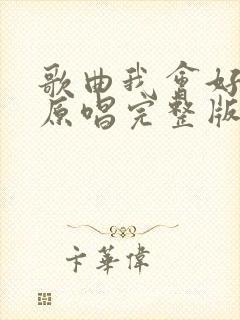 歌曲我会好
原唱完整版
卞華偉